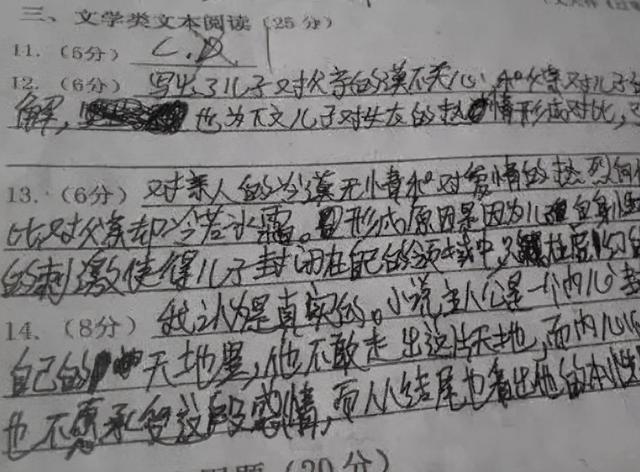 三、文学类文本阅读（25分）
11.（6分） C.D
12.（6分） 写出了儿子对父亲的漠不关心，和父亲对儿子
解，也为下文儿子对女友的热情形成对比，
13.（6分） 对亲人的冷漠无情和对爱情的热烈向
比对父亲却冷若冰霜。形成原因是因为儿 自身
的刺激使得儿子封闭在自己的领域中
14.（8分） 我认为是真实的。小说主人公是一个内心封
自己的天地里，他不敢走出这片天地，而内心
也不愿承受这段感情，而从结尾也看出他的本性
（20分）